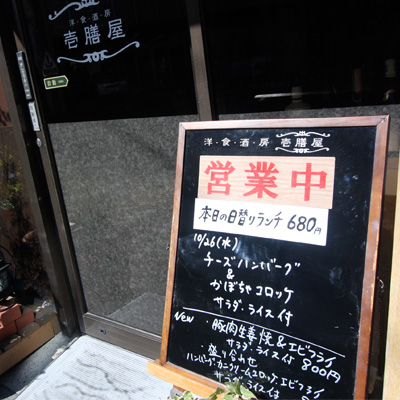 洋・食・酒・房
壱膳屋
自動
洋・食・酒・房 壱膳屋
営業中
本日の日替りランチ 680円
10/26(水)
チーズハンバーグ
&
かぼちゃコロッケ
サラダ・ライス付
NEW
・豚肉生姜焼&エビフライ
サラダ・ライス付 800円
・盛り合わせ
ハンバーグ・カニクリームコロッケ・エビフライ
サラダ・ライス付